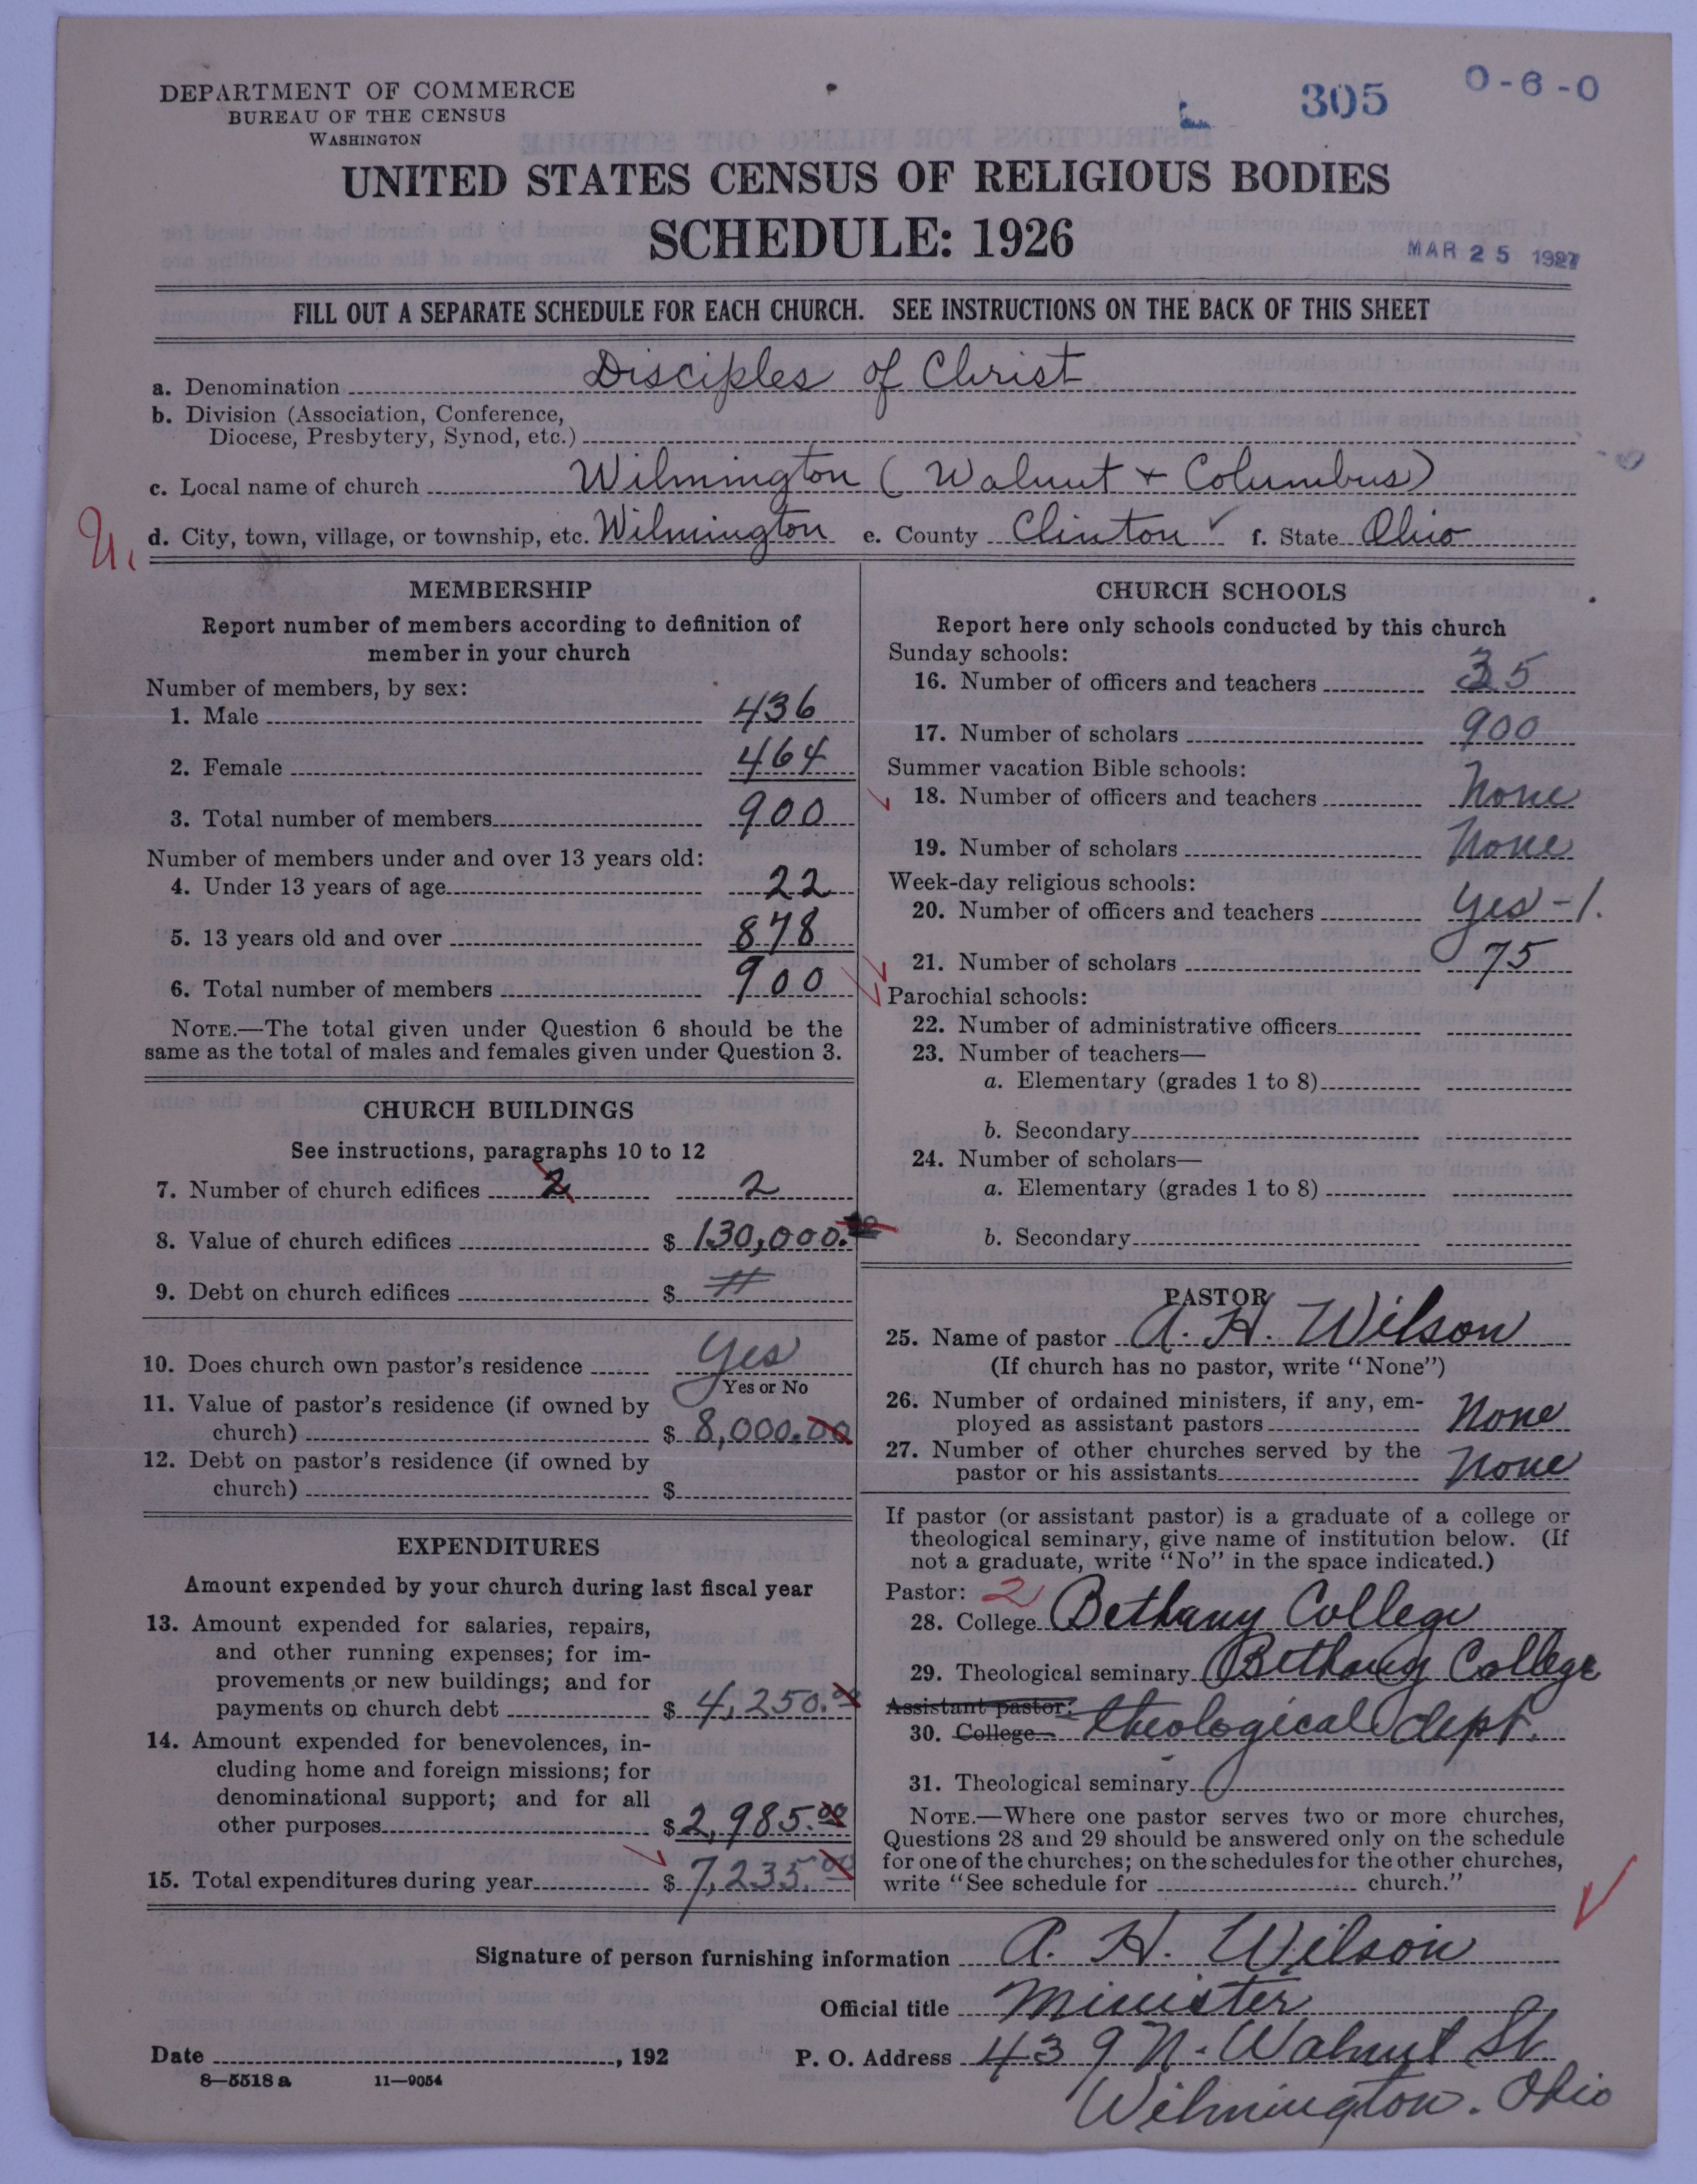 DEPARTMENT OF COMMERCE
BUREAU OF THE CENSUS
WASHINGTON
305
0-6-0
UNITED STATES CENSUS OF RELIGIOUS BODIES
SCHEDULE: 1926
MAR 25 1927
FILL OUT A SEPARATE SCHEDULE FOR EACH CHURCH. SEE INSTRUCTIONS ON THE BACK OF THIS SHEET
a. Denomination Disciples of Christ
b. Division (Association, Conference,
Diocese, Presbytery, Synod, etc.)
c. Local name of church Wilmington (Walnut + Columbus)
d. City, town, village, or township, etc. Wilmington e. County Clinton ✓ f. State Ohio
MEMBERSHIP
Report number of members according to definition of
member in your church
Number of members, by sex:
1. Male 436
2. Female 464
3. Total number of members 900
Number of members under and over 13 years old:
4. Under 13 years of age 22
5. 13 years old and over 878
6. Total number of members 900
NOTE.—The total given under Question 6 should be the
same as the total of males and females given under Question 3.
CHURCH BUILDINGS
See instructions, paragraphs 10 to 12
7. Number of church edifices 2 2
8. Value of church edifices $ 130,000.
9. Debt on church edifices $
10. Does church own pastor's residence Yes
Yes or No
11. Value of pastor's residence (if owned by
church) $ 8,000.00
12. Debt on pastor's residence (if owned by
church) $
EXPENDITURES
Amount expended by your church during last fiscal year
13. Amount expended for salaries, repairs,
and other running expenses; for im-
provements or new buildings; and for
payments on church debt $ 4,250.00
14. Amount expended for benevolences, in-
cluding home and foreign missions; for
denominational support; and for all
other purposes $ 2,985.00
15. Total expenditures during year $ 7,235.00
CHURCH SCHOOLS
Report here only schools conducted by this church
Sunday schools:
16. Number of officers and teachers 35
17. Number of scholars 900
Summer vacation Bible schools:
18. Number of officers and teachers None
19. Number of scholars None
Week-day religious schools:
20. Number of officers and teachers Yes - 1.
21. Number of scholars 75
Parochial schools:
22. Number of administrative officers
23. Number of teachers—
a. Elementary (grades 1 to 8)
b. Secondary
24. Number of scholars—
a. Elementary (grades 1 to 8)
b. Secondary
PASTOR
25. Name of pastor A. H. Wilson
(If church has no pastor, write "None")
26. Number of ordained ministers, if any, em-
ployed as assistant pastors None
27. Number of other churches served by the
pastor or his assistants None
If pastor (or assistant pastor) is a graduate of a college or
theological seminary, give name of institution below. (If
not a graduate, write "No" in the space indicated.)
Pastor: 2
28. College Bethany College
29. Theological seminary Bethany College
Assistant pastor:
30. College theological dept.
31. Theological seminary
NOTE.—Where one pastor serves two or more churches,
Questions 28 and 29 should be answered only on the schedule
for one of the churches; on the schedules for the other churches,
write "See schedule for church."
Signature of person furnishing information A. H. Wilson
Official title Minister
Date , 192 P. O. Address 439 N. Walnut St
8—5518 a 11—9054
Wilmington. Ohio